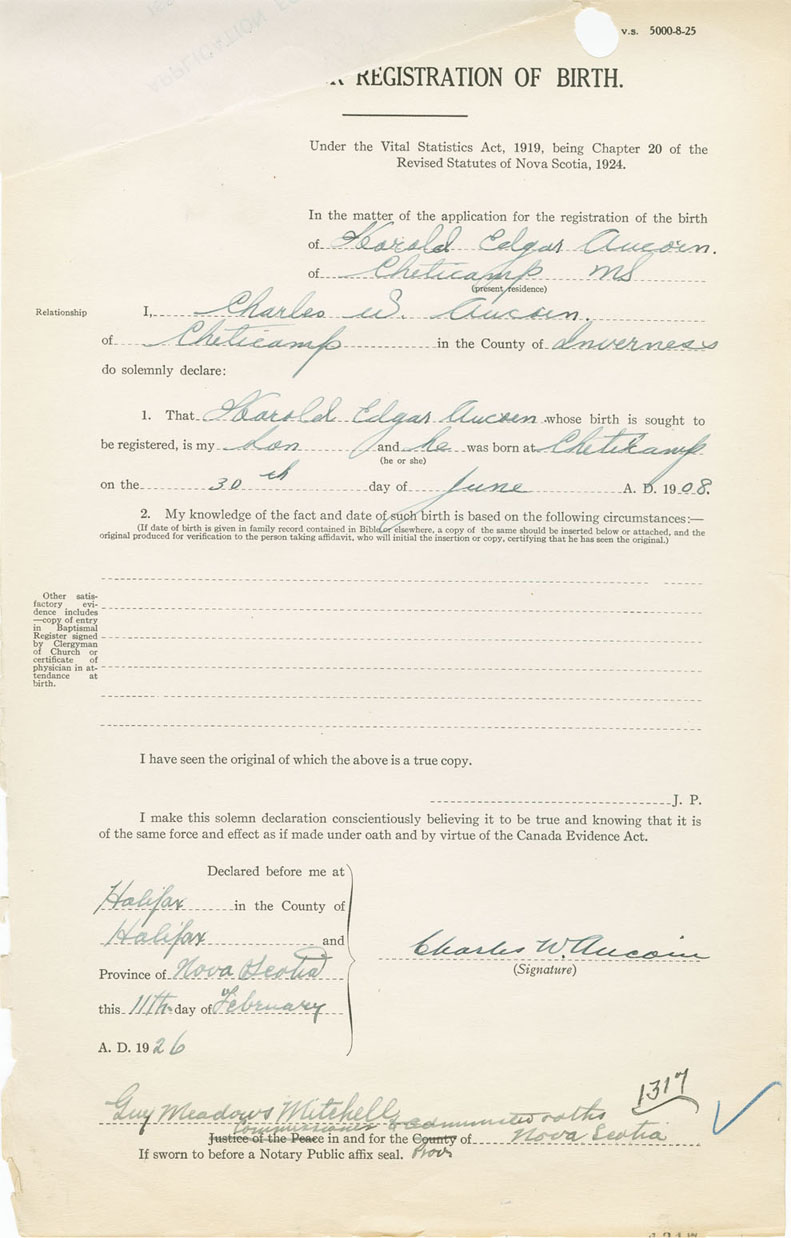 APPLICATION FO
v.s. 5000-8-25
R REGISTRATION OF BIRTH.
Under the Vital Statistics Act, 1919, being Chapter 20 of the
Revised Statutes of Nova Scotia, 1924.
In the matter of the application for the registration of the birth
of Harold Edgar Aucoin.
of Cheticamp NS
(present residence)
Relationship
I, Charles W. Aucoin.
of Cheticamp in the County of Inverness
do solemnly declare:
1. That Harold Edgar Aucoin whose birth is sought to
be registered, is my Son and he was born at Cheticamp
(he or she)
on the 30th day of June A. D. 1908.
2. My knowledge of the fact and date of such birth is based on the following circumstances:—
(If date of birth is given in family record contained in Bible or elsewhere, a copy of the same should be inserted below or attached, and the
original produced for verification to the person taking affidavit, who will initial the insertion or copy, certifying that he has seen the original.)
Other satis-
factory evi-
dence includes
—copy of entry
in Baptismal
Register signed
by Clergyman
of Church or
certificate of
physician in at-
tendance at
birth.
I have seen the original of which the above is a true copy.
J. P.
I make this solemn declaration conscientiously believing it to be true and knowing that it is
of the same force and effect as if made under oath and by virtue of the Canada Evidence Act.
Declared before me at
Halifax in the County of
Halifax and
Province of Nova Scotia
this 11th day of February
A. D. 1926
Charles W. Aucoin
(Signature)
1317
Guy Meadows Mitchell
Commissioner to administer oaths
Justice of the Peace in and for the County of Nova Scotia
Prov
If sworn to before a Notary Public affix seal.